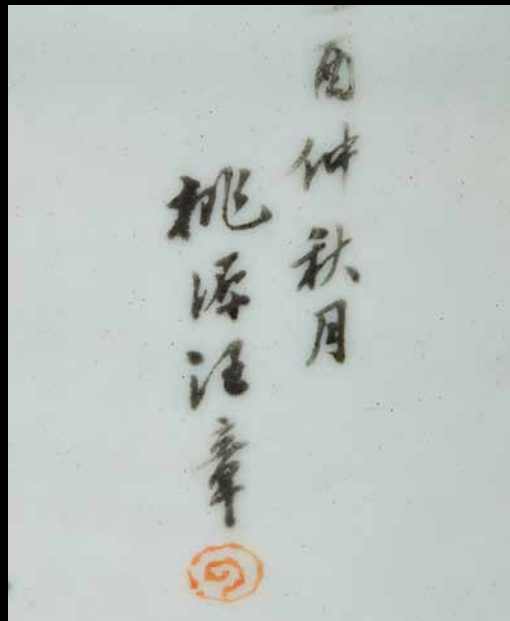 酉仲秋月
桃源汪章